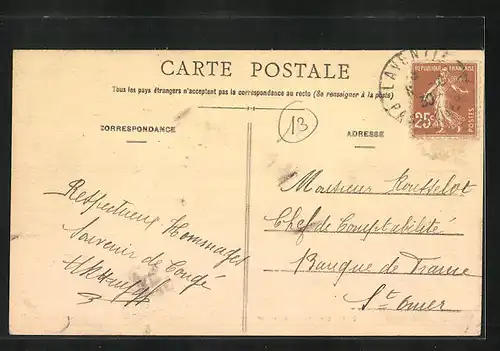 CARTE POSTALE
Tous les pays étrangers n'acceptent pas la correspondance au recto (Se renseigner à la poste)
CORRESPONDANCE
13
ADRESSE
LAVENTIE
30
REPUBLIQUE FRANÇAISE
25c
POSTES
Respectueux Hommages
Souvenir de Congé
Monsieur Rousselot
Chef de Comptabilité
Banque de France
St Omer